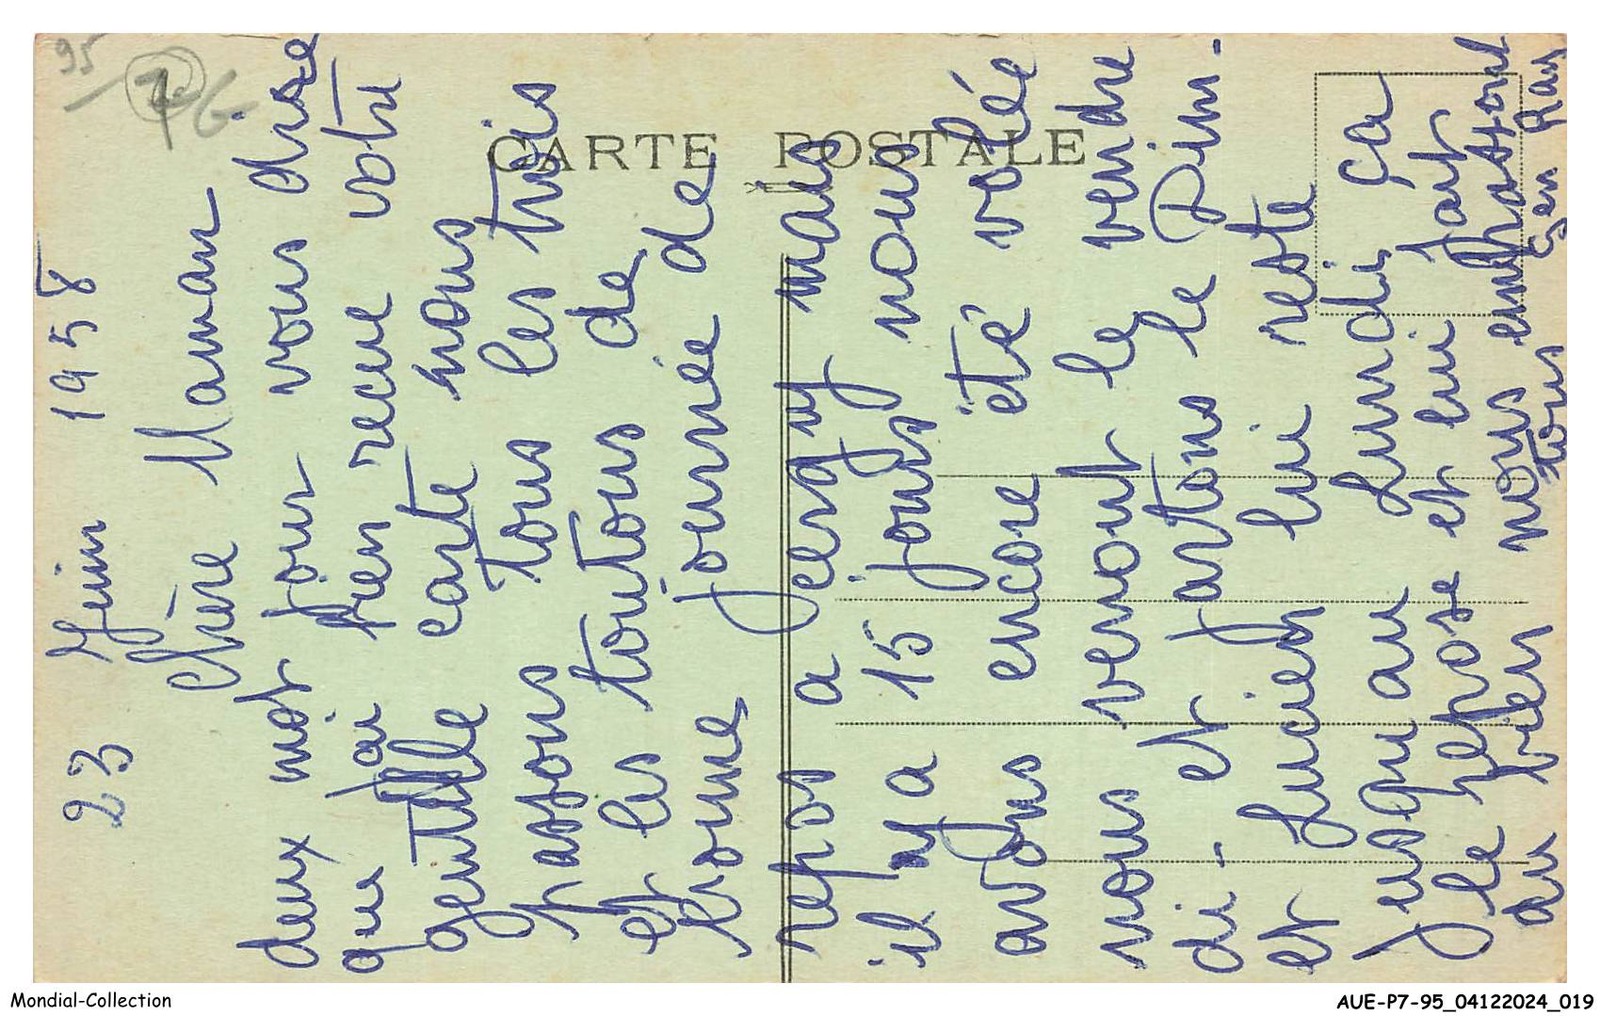 95
CARTE POSTALE
23 Juin 1958
Chère Maman
deux mot pour vous dire
que j'ai bien recue votre
gentille carte nous
passons tous les trois
et les toutous de
bonne journée de
repos a Jengny mais
il y a 15 jours nous
avons encore été volée
nous venont le vendre
di - et partons le Dim -
et Lucien lui reste
jusqu'au Lundi, ça
le repose et lui fait
du bien nous embrassont
tous
Mondial-Collection
AUE-P7-95_04122024_019